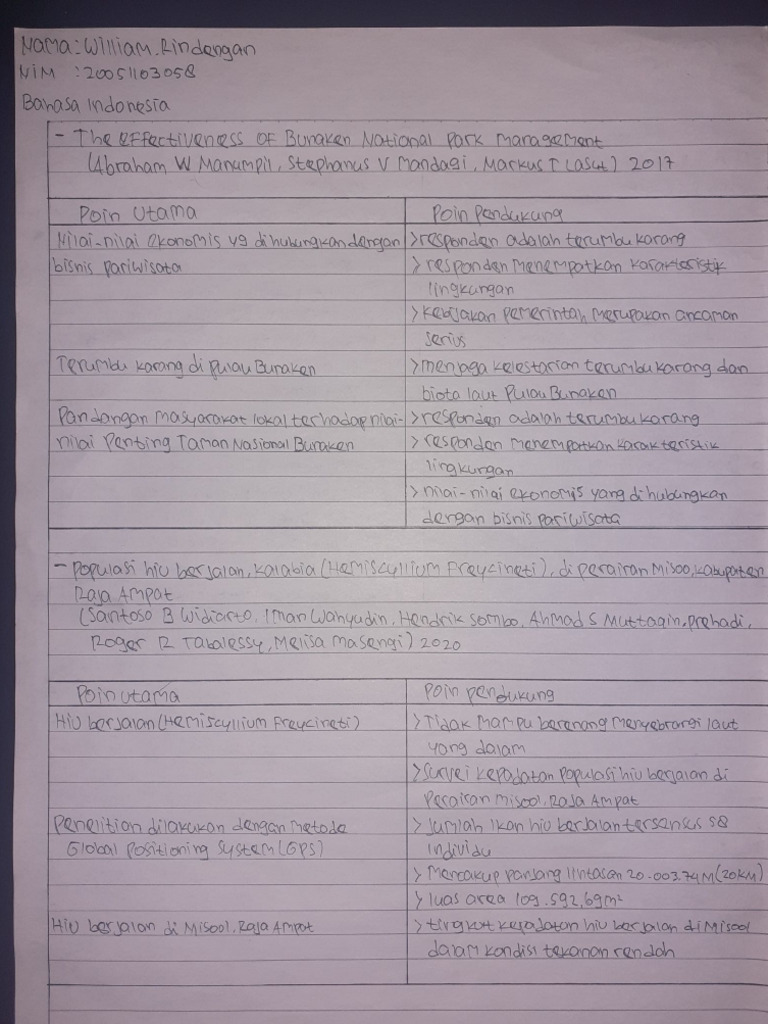 Nama : William.Rindengan
NIM : 20051103058
Bahasa Indonesia
- The effectiveness of Bunaken National Park Management
(Abraham W Manumpil, Stephanus V Mandagi, Markus T Lasut) 2017
Poin Utama
Poin Pendukung
Nilai-nilai ekonomis yg dihubungkan dengan
bisnis pariwisata
> responden adalah terumbu karang
> responden menempatkan karakteristik
lingkungan
> kebijakan pemerintah merupakan ancaman
serius
Terumbu karang di pulau Bunaken
> menjaga kelestarian terumbu karang dan
biota laut Pulau Bunaken
Pandangan masyarakat lokal terhadap nilai-
nilai penting Taman Nasional Bunaken
> responden adalah terumbu karang
> responden menempatkan karakteristik
lingkungan
> nilai-nilai ekonomis yang dihubungkan
dengan bisnis pariwisata
- Populasi hiu berjalan, kalabia (Hemiscyllium Freycineti), di perairan Misool, kabupaten
Raja Ampat
(Santoso B Widiarto, Iman Wahyudin, Hendrik Sombo, Ahmad S Muttaqin, Prehadi,
Roger R Tabalessy, Melisa Masengi) 2020
Poin utama
Poin pendukung
Hiu berjalan (Hemiscyllium Freycineti)
> Tidak mampu berenang menyebrangi laut
yang dalam
> Survei kepadatan populasi hiu berjalan di
Perairan Misool, Raja Ampat
Penelitian dilakukan dengan metode
Global Positioning System (GPS)
> Jumlah ikan hiu berjalan tersensus 58
individu
> Mencakup panjang lintasan 20.003.74 M (20KM)
> luas area 109.592,69m²
Hiu berjalan di Misool, Raja Ampat
> tingkat kepadatan hiu berjalan di Misool
dalam kondisi tekanan rendah